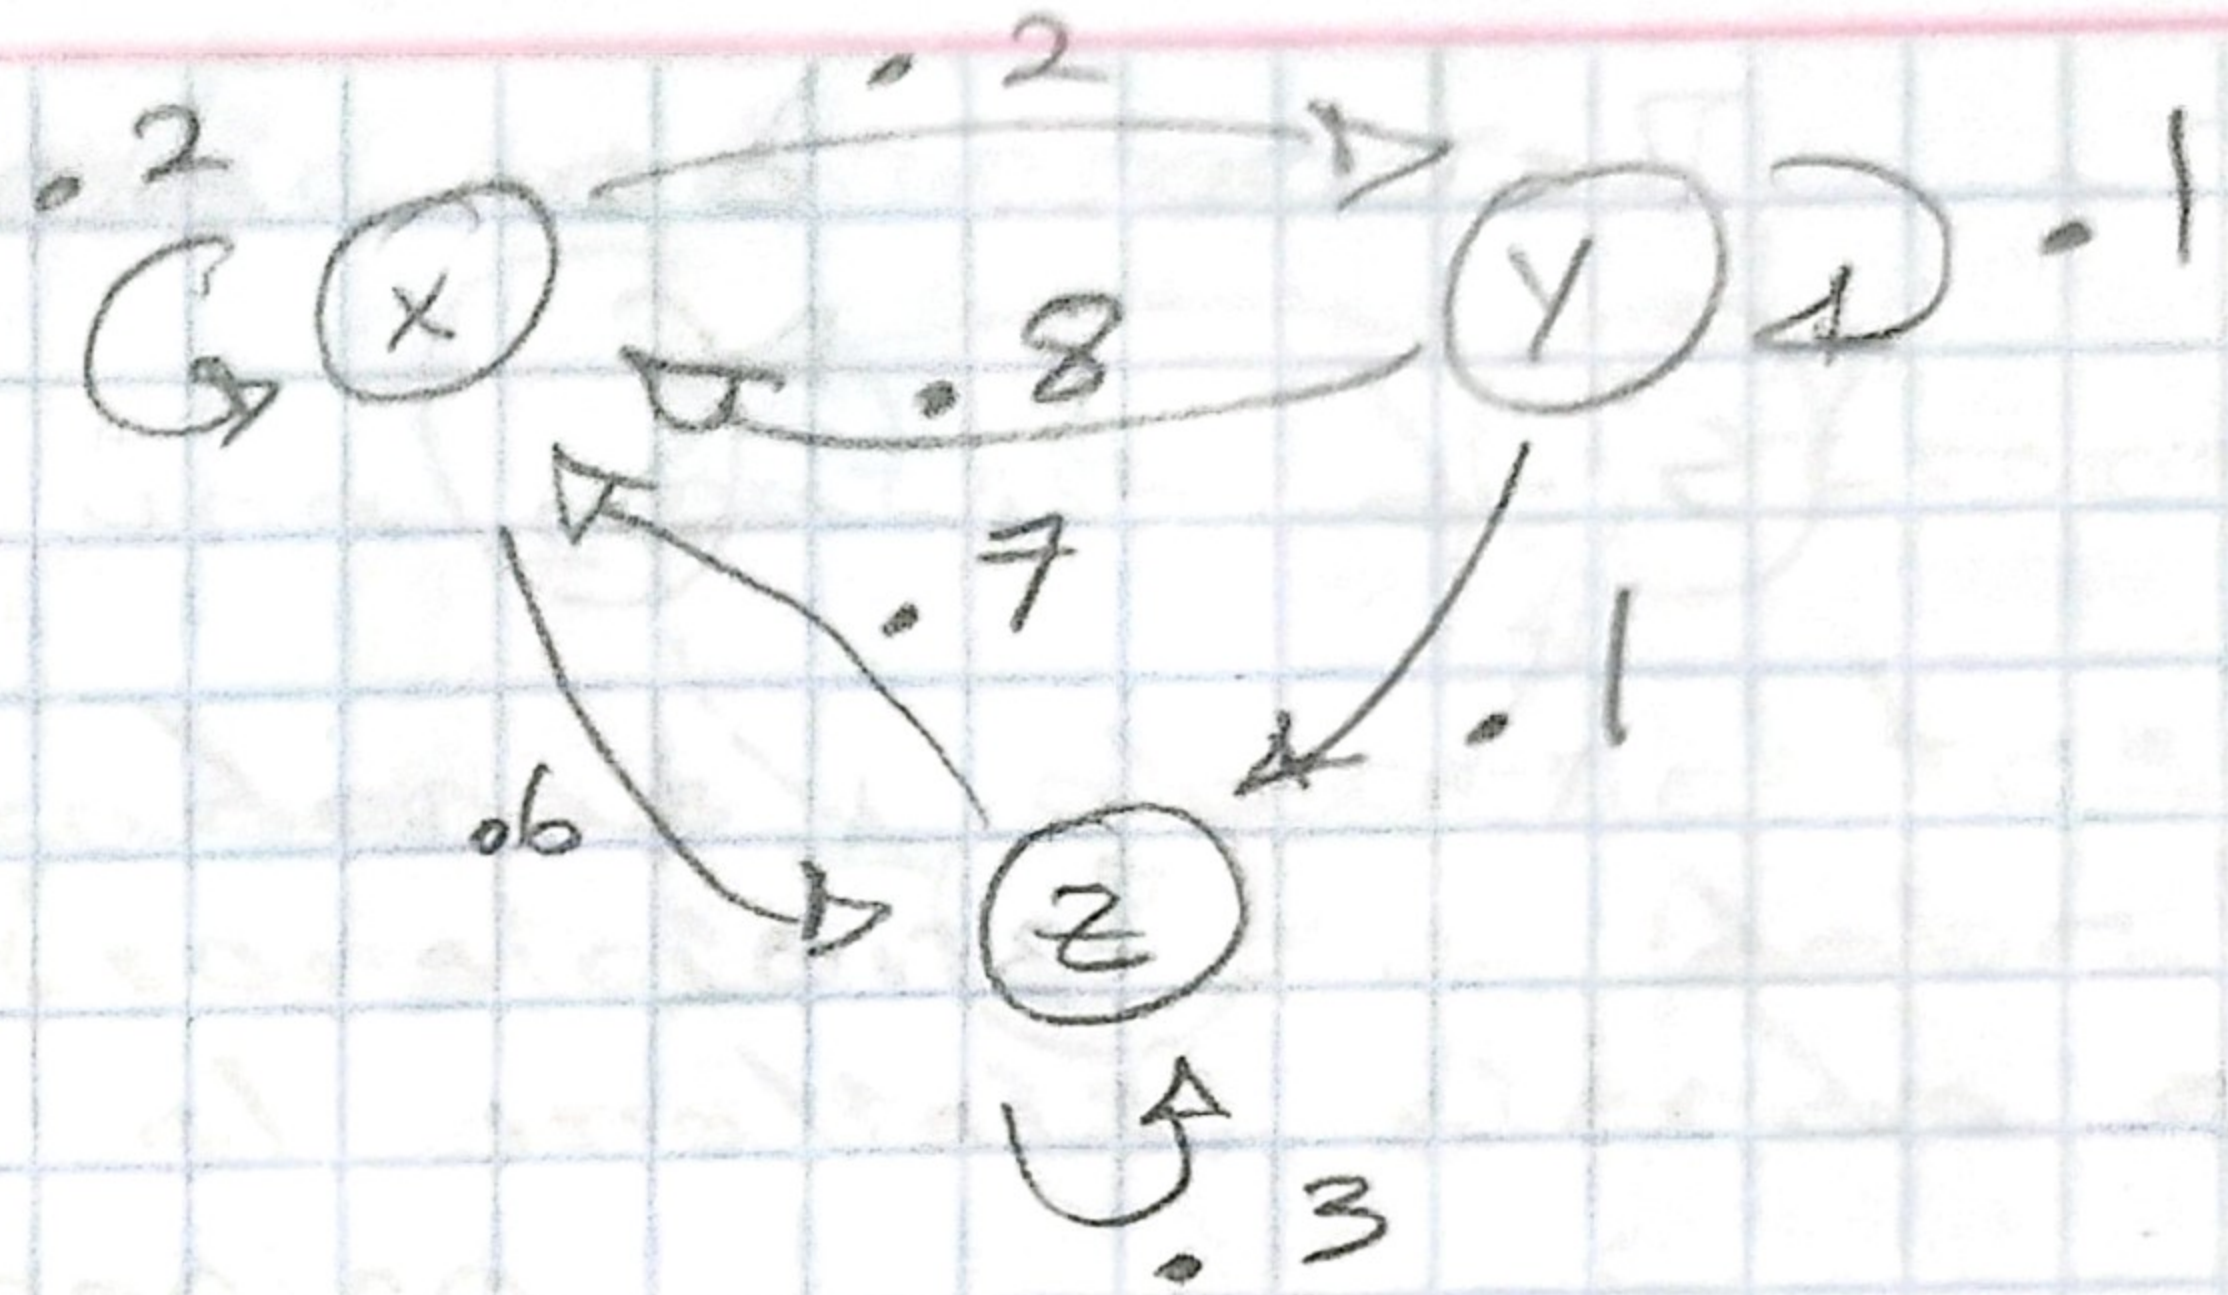 .2
.2
X
Y
.1
.8
.7
.1
.6
Z
.3